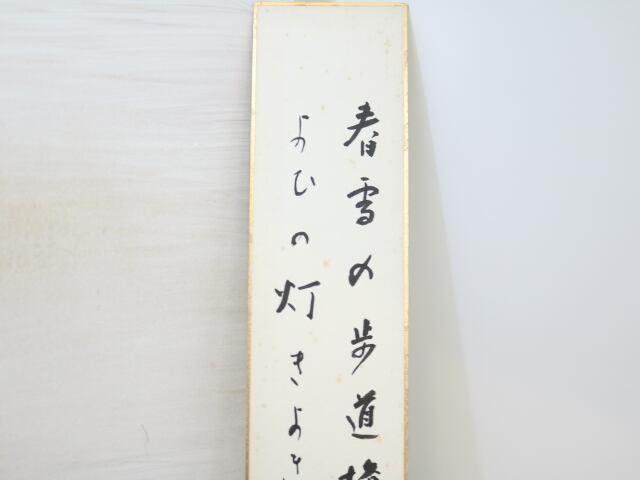 春雪の歩道橋
よひの灯きよき